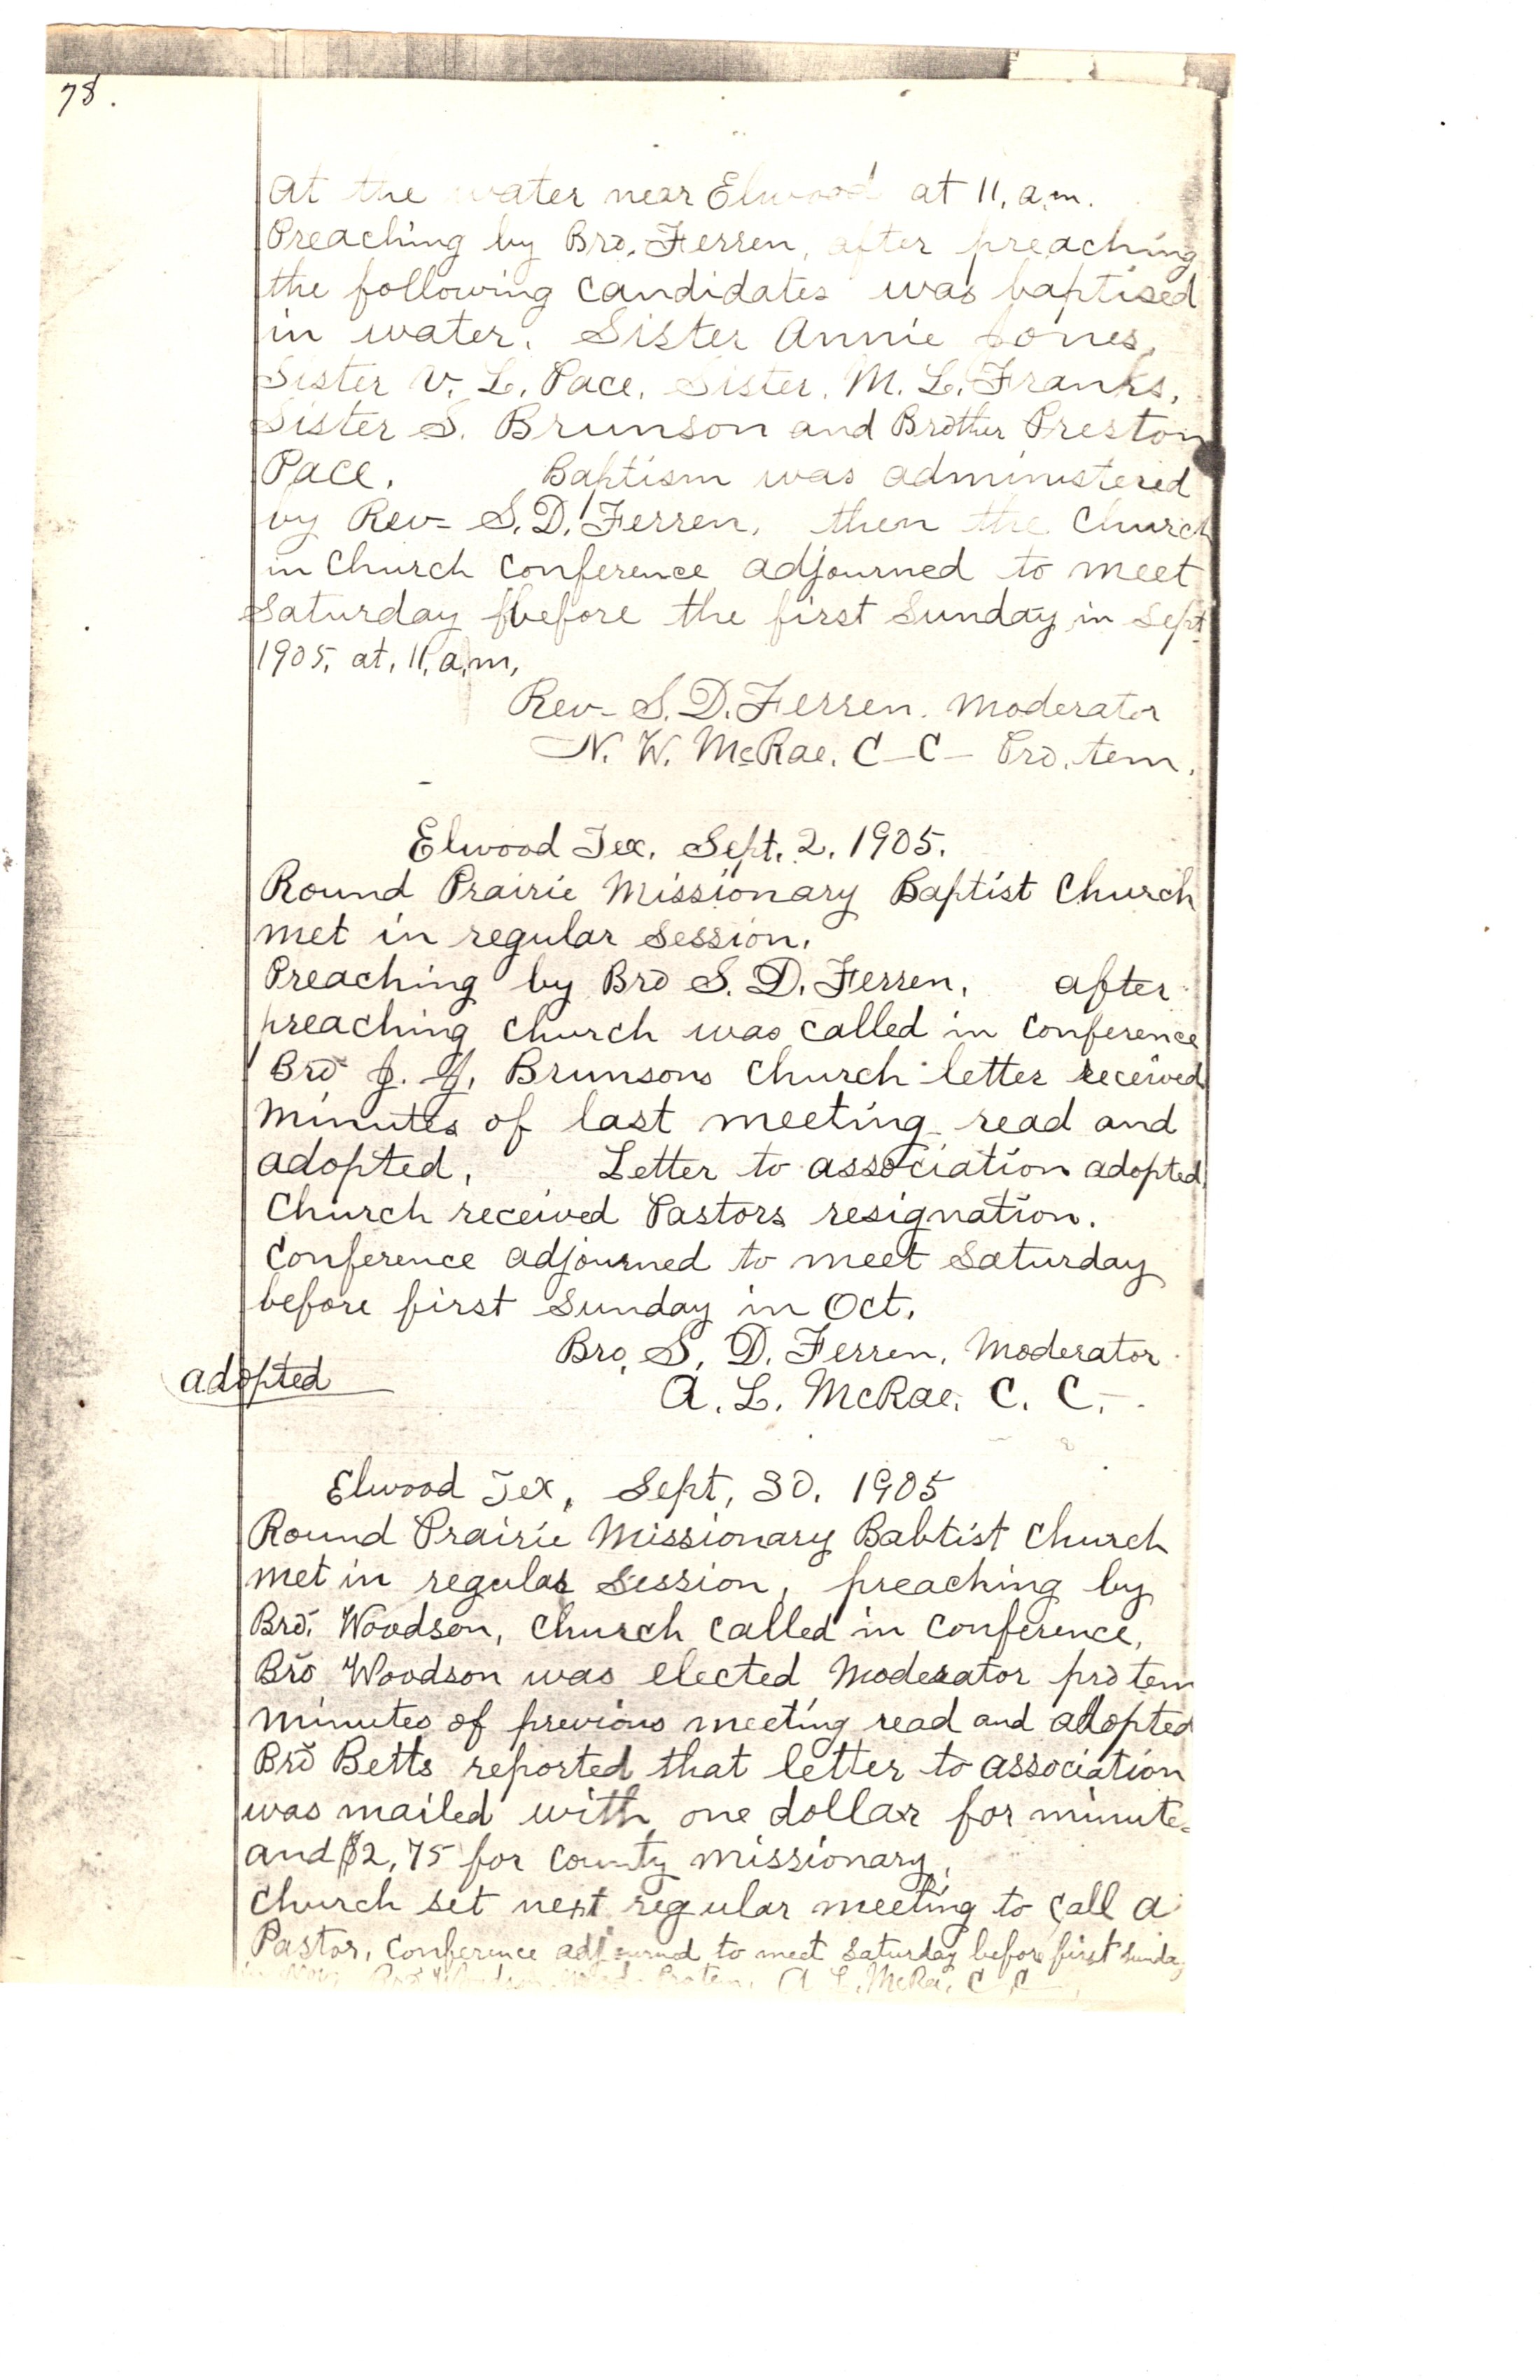 78.
At the water near Elwood at 11, a.m.
Preaching by Bro. Ferren, after preaching
the following candidates was baptised
in water. Sister Annie Jones,
Sister V. L. Pace, Sister. M. L. Franks,
Sister S. Brunson and Brother Preston
Pace. Baptism was administered
by Rev- S. D. Ferren, then the Church
in Church Conference adjourned to meet
Saturday before the first Sunday in Sept
1905, at, 11, a.m,
Rev- S. D. Ferren. Moderator
N. W. McRae. C-C- Pro. tem.
Elwood Tex. Sept. 2. 1905.
Round Prairie Missionary Baptist Church
met in regular session.
Preaching by Bro S. D. Ferren. after
preaching church was called in Conference
Bro J. Y. Brunsons church letter received
Minutes of last meeting read and
adopted. Letter to association adopted
Church received Pastors resignation.
Conference adjourned to meet Saturday
before first Sunday in Oct.
Bro. S. D. Ferren. Moderator
adopted
A. L. McRae. C. C.
Elwood Tex, Sept, 30. 1905
Round Prairie Missionary Babtist Church
met in regular session, preaching by
Bro. Woodson, Church called in Conference,
Bro Woodson was elected Moderator pro tem
Minutes of previous meeting read and adopted
Bro Betts reported that letter to association
was mailed with one dollar for minutes
and $2,75 for County missionary,
Church set next regular meeting to call a
Pastor, Conference adjourned to meet Saturday before first Sunday
A L. McRae, C C